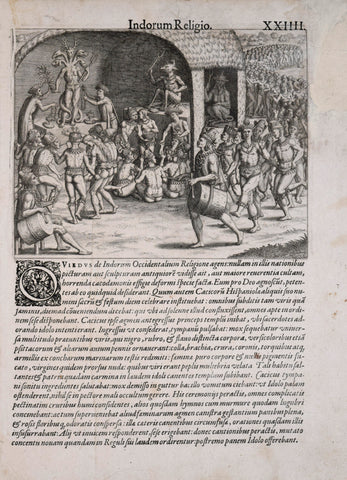 Indorum Religio.
XXIIII.
OVIEDVS de Indorum Occidentalium Religione agens: nullam in illis nationibus
picturam aut sculpturam antiquiorẽ vidisse ait, aut maiore reuerentia cultam,
horrenda cacodæmonis effigie deformi specie facta. Eum pro Deo agnoscũt, peten-
tes ab eo quidquid desiderant. Quum autem Cacicus Hispaniola aliquis suo nu-
mini sacrũ & festum diem celebrare instituebat: omnibus subditis tam viris quã
fœminis, diem ad conueniendum dicebat: qui vbi ad fo lenne illud conuocissent, omnes apte in ordi-
nem sese disponebant. Cacicus ipse agmen antegressus princeps templũ intrat, vbi sacerdotes ad-
orando idolo intenti erant. Ingressus vt consederat, tympanũ pulsabat: mox sequebatur vniuer-
sa multitudo præeuntibus viris, qui nigro, rubro, & flauo distincta corpora, versicolorib. ex
psittacorum & aliarum auium pennis ornamentis induebant: colla, brachia, crura, coronis, torquib.
armillis ex concharum marinarum testis redimiti: fœminæ puro corpore & nullis pigmentis fu-
cato, virgines quidem prorsus nudæ: quibus vir erant peplis mulieribria velata. Tali habitu sal-
tantes & patrium quoddam carmen in laudem idoli canentes templum subibant. Cacicus tympa-
ni sonitu ingredientes salutabat: mox demisso in guttur bacillo vomitum ciebant: vt Idolo palam
ostenderent, nihil se in pectore mali occultum gerere. His ceremoniis peractis, omnes complicatis
pectinatim cruribus humi consident, aliosque quosdam hymnos cum murmure quodam lugubri
concinebant: actum superueniebat aliud fœminarum agmen canistra gestantium panibus plena,
& rosis floribusque, odoratis conspersa: illa cateris canentibus circumfusa, orationes quasdam illis
insusurrabant: Alij vt inuicem responderent, sese erigebant: donec cantionibus peractis, mutato
concentu nouam quandam in Reguli sui laudem ordirentur: postremo panem Idolo offerebant.